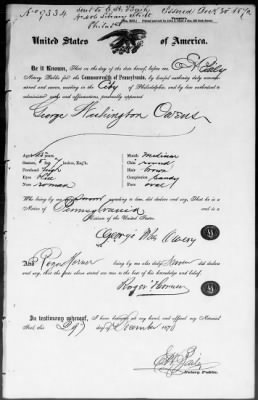 United States of America.
Be it Known, That on the day of the date hereof before me
Notary Public for the Commonwealth of Pennsylvania, by lawful authority duly commissioned
and sworn, residing in the City of Philadelphia, and by law authorized to
administer oaths and affirmations, personally appeared
George Washington Owens
Age,
Stature, Eng.
Forehead, High
Eyes,
Nose, roman
Mouth, Medium
Chin, round
Hair, Brown
Complexion, Sandy
Face, oval
Who being by me duly sworn according to law, did declare and say, That he is a
Native of Pennsylvania and is a
Citizen of the United States.
And Roger Horner being by me also duly sworn did declare
and say, that the facts above stated are true to the best of his knowledge and belief.
Roger Horner
In testimony whereof, I have hereunto set my hand, and affixed my Notarial
Seal, this 29th December 1870
Notary Public.